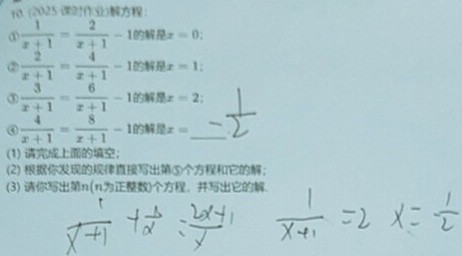 10. (2025·课时作业)解方程:
① \frac{1}{x+1} = \frac{2}{x+1} - 1的解是x = 0;
② \frac{2}{x+1} = \frac{4}{x+1} - 1的解是x = 1;
③ \frac{3}{x+1} = \frac{6}{x+1} - 1的解是x = 2;
④ \frac{4}{x+1} = \frac{8}{x+1} - 1的解是x = -\frac{1}{2}
(1) 请完成上面的填空;
(2) 根据你发现的规律直接写出第⑤个方程和它的解;
(3) 请你写出第n(n为正整数)个方程, 并写出它的解.
\frac{1}{x+1} = \frac{2x+1}{x} \frac{1}{x+1} = 2 x = \frac{1}{2}